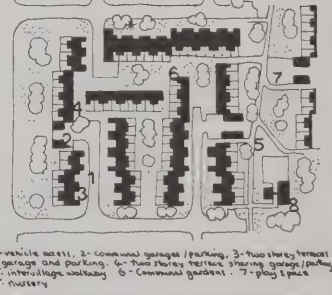 6
7
4
2
5
1
3
8
vehicle access, 2- communal garages/parking. 3- two storey terraces
garage and parking. 4- two storey terrace sharing garage/parking
intervillage walkway 6- Communal gardens. 7- play space
nursery